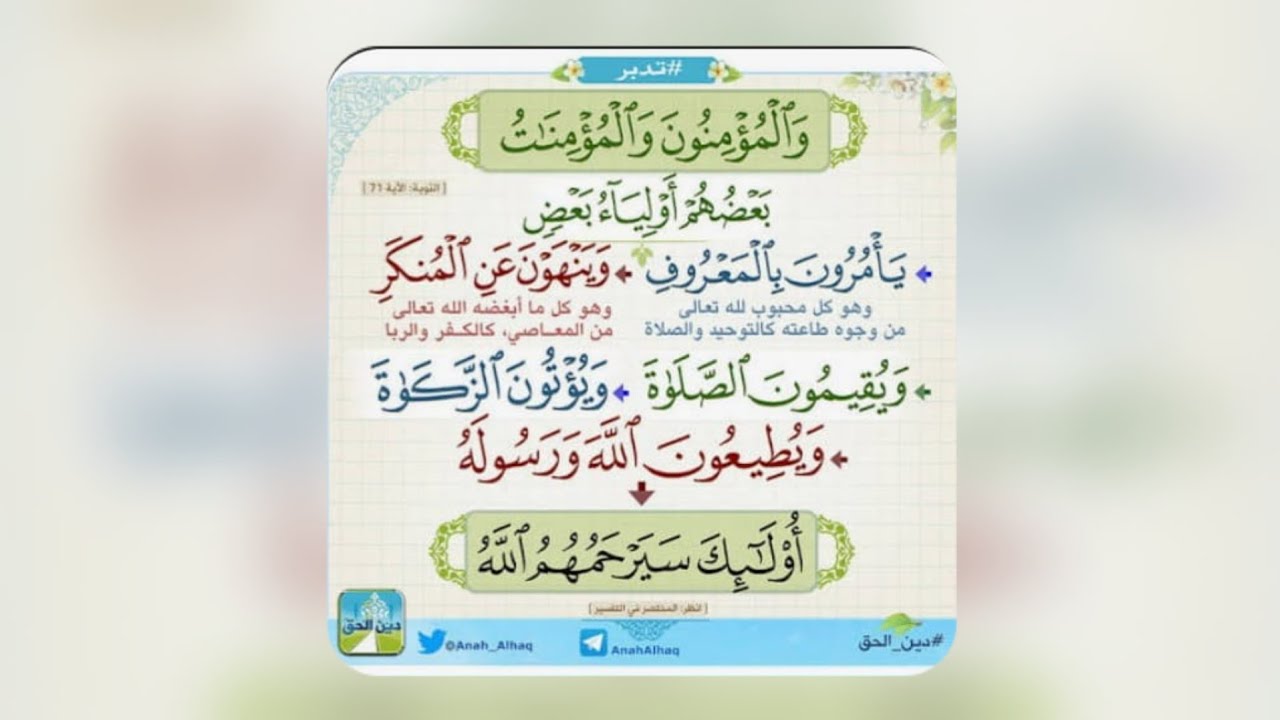 #تدبر
وَٱلْمُؤْمِنُونَ وَٱلْمُؤْمِنَٰتُ
[التوبة: الآية 71]
بَعْضُهُمْ أَوْلِيَآءُ بَعْضٍ
يَأْمُرُونَ بِٱلْمَعْرُوفِ وَيَنْهَوْنَ عَنِ ٱلْمُنكَرِ
وهو كل محبوب لله تعالى
من وجوه طاعته كالتوحيد والصلاة
وهو كل ما أبغضه الله تعالى
من المعاصي، كالكفر والربا
وَيُقِيمُونَ ٱلصَّلَوٰةَ وَيُؤْتُونَ ٱلزَّكَوٰةَ
وَيُطِيعُونَ ٱللَّهَ وَرَسُولَهُ
أُو۟لَٰٓئِكَ سَيَرْحَمُهُمُ ٱللَّهُ
[انظر: المختصر في التفسير]
#دين_الحق
AnahAlhaq
@Anah_Alhaq
دين الحق